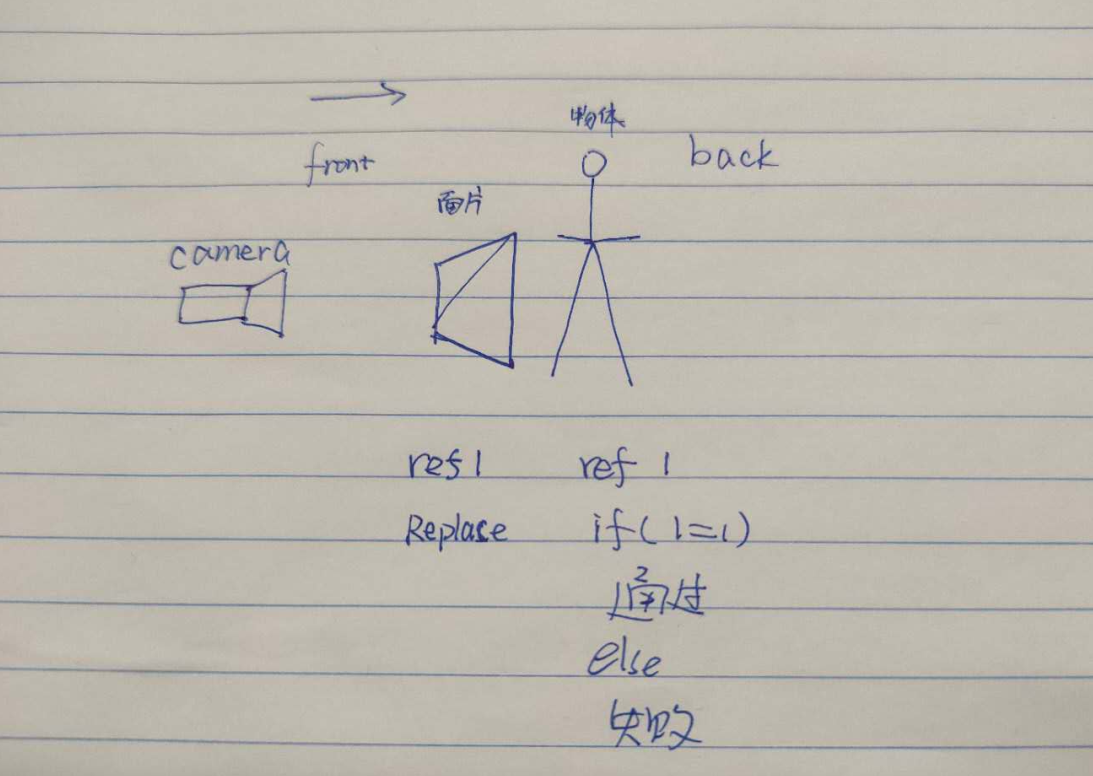 物体
front
back
面片
camera
ref 1
ref 1
Replace
if(1=1)
通过
else
失败